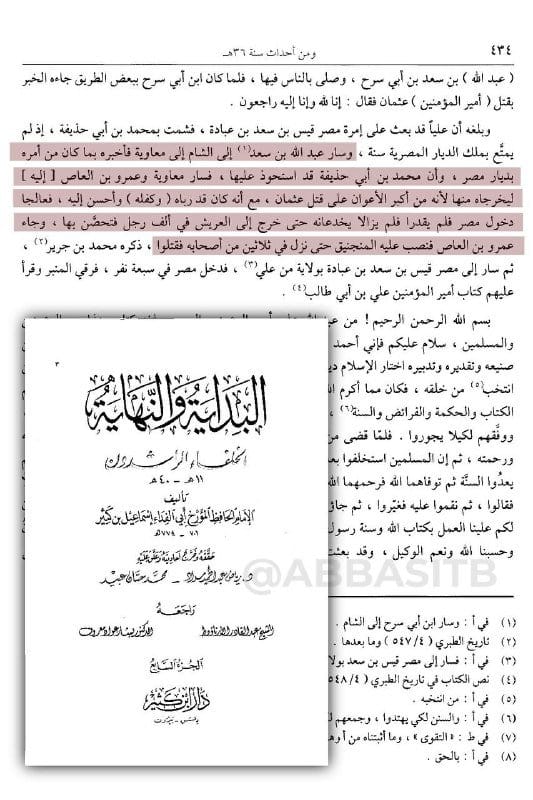 ٤٣٤
ومن أحداث سنة ٣٦هـ
( عبد الله ) بن سعد بن أبي سرح ، وصلى بالناس فيها ، فلما كان ابن أبي سرح ببعض الطريق جاءه الخبر
بقتل ( أمير المؤمنين ) عثمان فقال : إنا لله وإنا إليه راجعون .
وبلغه أن علياً قد بعث على إمرة مصر قيس بن سعد بن عبادة ، فشمت بمحمد بن أبي حذيفة ، إذ لم
يمتَّع بملك الديار المصرية سنة ، وسار عبد الله بن سعد(١) إلى الشام إلى معاوية فأخبره بما كان من أمره
بديار مصر ، وأن محمد بن أبي حذيفة قد استحوذ عليها ، فسار معاوية وعمرو بن العاص [ إليه ]
ليخرجاه منها لأنه من أكبر الأعوان على قتل عثمان ، مع أنه كان قد رباه ( وكفله ) وأحسن إليه ، فعالجا
دخول مصر فلم يقدرا فلم يزالا يخدعانه حتى خرج إلى العريش في ألف رجل فتحصَّن بها ، وجاء
عمرو بن العاص فنصب عليه المنجنيق حتى نزل في ثلاثين من أصحابه فقتلوا ، ذكره محمد بن جرير(٢) ،
ثم سار إلى مصر قيس بن سعد بن عبادة بولاية من علي(٣) ، فدخل مصر في سبعة نفر ، فرقي المنبر وقرأ
عليهم كتاب أمير المؤمنين علي بن أبي طالب(٤) .
بسم الله الرحمن الرحيم ! من
والمسلمين ، سلام عليكم فإني أحمد
صنيعه وتقديره وتدبيره اختار الإسلام
انتخب(٥) من خلقه ، فكان مما أكرم
الكتاب والحكمة والفرائض والسنة(٦) ،
ووفَّقهم لكيلا يجوروا . فلمّا قضى من
ورحمته ، ثم إن المسلمين استخلفوا
يعدُوا السنَّة ثم توفاهما الله فرحمهما
فقالوا ، ثم نقموا عليه فغيّروا ، ثم
لكم علينا العمل بكتاب الله وسنة رسول
وحسبنا الله ونعم الوكيل ، وقد
(١) في أ : وسار ابن أبي سرح إلى الشام .
(٢) تاريخ الطبري (٥٤٧/٤) وما بعدها .
(٣) في أ : فسار إلى مصر قيس بن سعد
(٤) نص الكتاب في تاريخ الطبري (٥٤٨/٤
(٥) في أ : من انتخبه .
(٦) في أ : والسنن لكي يهتدوا ، وجمعهم
(٧) في ط : «التقوى» ، وما أثبتناه من أ
(٨) في أ : بالحق .
٣
البداية والنهاية
الخلفاء الراشدون
١١هـ - ٤٠هـ
تأليف
الإمام الحافظ المؤرخ أبي الفداء إسماعيل بن كثير
٧٠١ - ٧٧٤هـ
حققه وخرج أحاديثه وعلق عليه
د. رياض عبد الحميد مراد - محمد حسان عبيد
راجعه
الشيخ عبد القادر الأرناؤوط
الدكتور بشار عواد معروف
الجزء السابع
دار ابن كثير
دمشق - بيروت
@ABBASITB